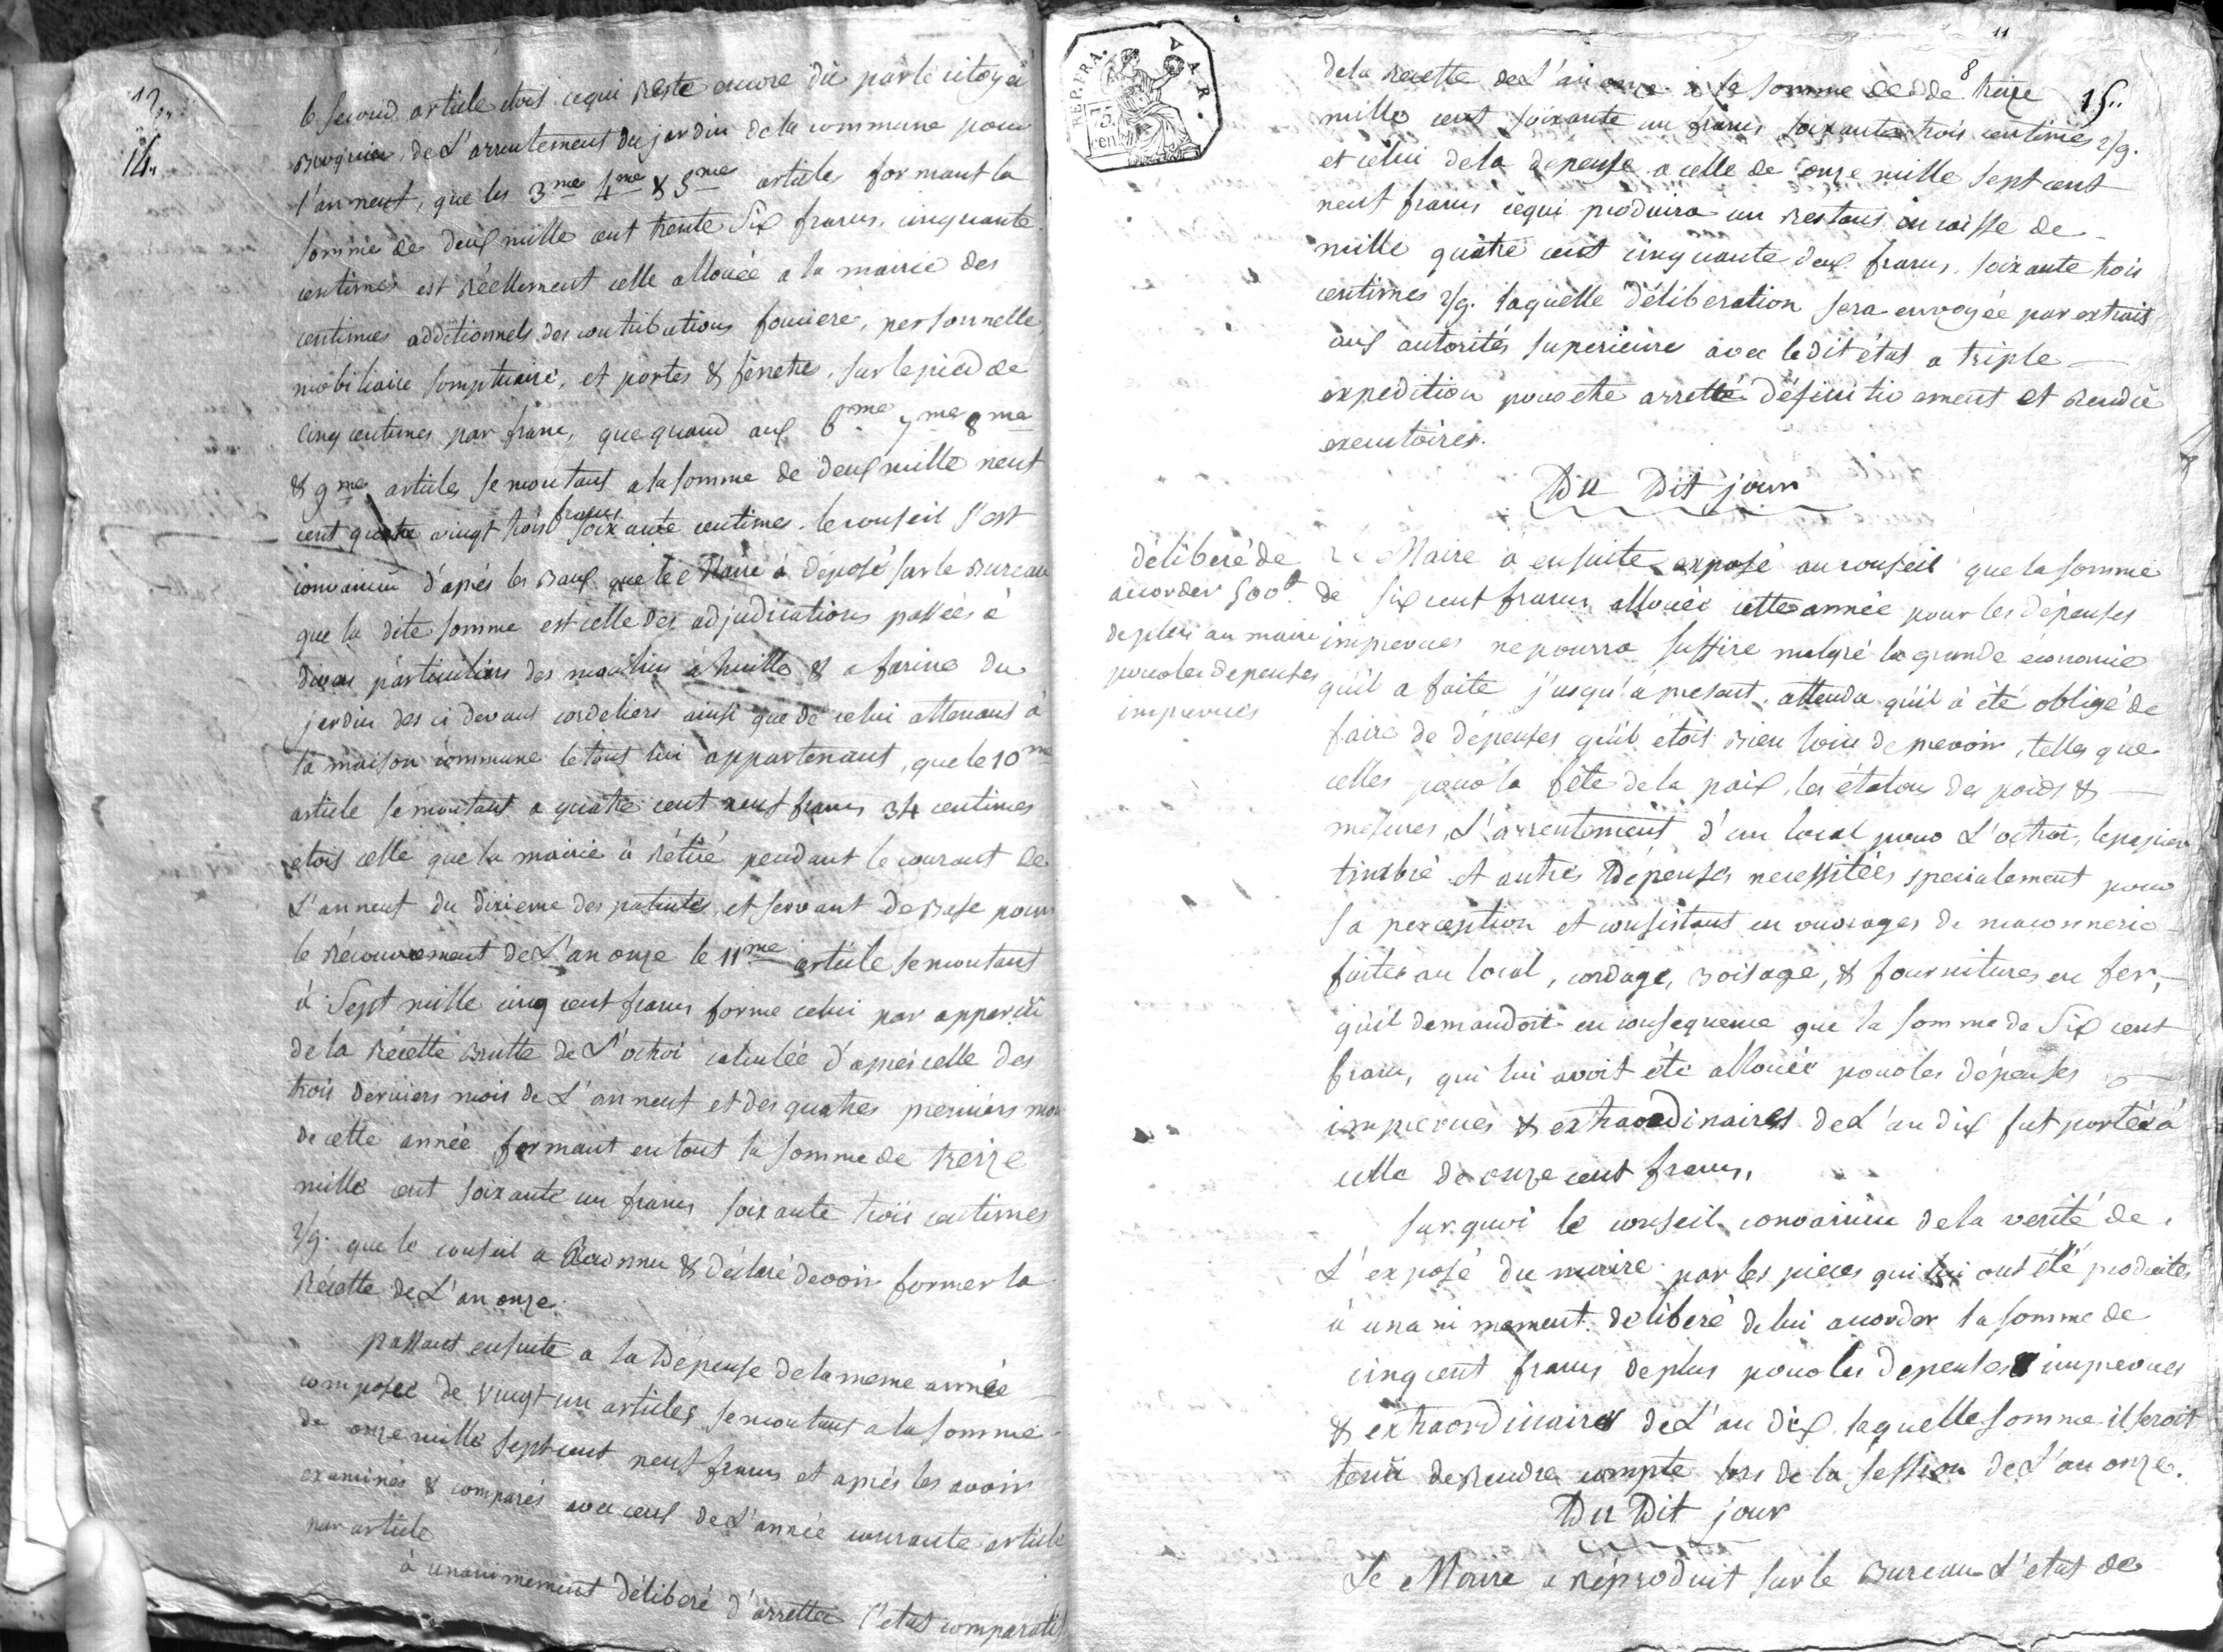 13..
14..
le second article etois cequi reste encore du par le citoyen
de L'arrentement du jardin de la commune pour
l'an neuf, que les 3me 4me & 5me article formant la
somme de deux mille cent trente six francs, cinquante
centimes est réellement celle allouée a la mairie des
centimes additionnels des contributions fonciere, personnelle,
mobiliaire somptuaire, et portes & fénetres, sur le pied de
cinq centimes par franc, que quand aux 6me 7me 8me
& 9me articles se montant a la somme de deux mille neuf
cent quatre vingt trois francs soixante centimes. le conseil s'est
convaincu d'aprés les Baux que le Maire à déposé sur le Bureau
que la dite somme est celle des adjudications passées à
divers particuliers des moulins à huille & a farine du
jardin des ci devant cordeliers ainsi que de celui attenant à
la maison commune le tout lui appartenant, que le 10me
article se montant a quatre cent neuf francs 34 centimes
etois celle que la mairie à rétiré pendant le courant de
L'an neuf du dixieme des patentes, et servant de Base pour
le récouvrement de L'an onze le 11me article se montant
à Sept mille cinq cent francs forme celui par apperçû
de la Récette Brutte de L'octroi calculée d'aprés celle des
trois derniers mois de L'an neuf et des quatres premiers mois
de cette année formant en tout la somme de treize
mille cent soixante un francs soixante trois centimes
2/9. que le conseil a Reconnu & déclaré devoir former la
Récette de L'an onze.
passant ensuite a la Dépense de la meme année
composée de vingt un articles se montant a la somme
de onze mille sept cent neuf francs et aprés les avoir
examinés & comparés avec ceux de L'année courante article
par article
à unanimement délibéré d'arretter l'etat comparatif
REP. FRA.
A. A. R.
75.
cent
11
8
15..
de la Recette de L'an onze a la somme de treize
mille cent soixante un francs soixante trois centimes 2/9.
et celui de la dépense a celle de onze mille sept cent
neuf francs cequi produira un Restant en caisse de
mille quatre cent cinquante deux francs. soixante trois
centimes 2/9. laquelle délibération sera envoyée par extrait
aux autorités superieure avec le dit état a triple
expedition pour etre arretté définitivement et Rendu
executoires.
Du Dit jour
délibéré de
accorder 500#
de plus au maire
pour les depenses
imprevues
Le Maire à ensuite exposé au conseil que la somme
de six cent francs allouée cette année pour les dépenses
imprevues ne pourra suffire malgré la grande économie
qu'il a faite jusqu'à present. attendu qu'il à été obligé de
faire de dépenses qu'il étois Bien loin de prevoir, telles que
celles pour la fête de la paix, les étalons des poids &
mesures, L'arrentement d'un local pour L'octroi, le papier
timbré et autres Dépenses necessitées specialement pour
sa perception et consistant en ouvrages de maconnerie
faites au local, cordage, Boisage, & fournitures en fer,
qu'il demandoit en consequence que la somme de Six cent
francs, qui lui avoit été allouée pour les dépenses
imprevues & extraordinaires de L'an dix fut portée à
celle de onze cent francs.
sur quoi le conseil convaincu de la verité de
L'exposé du maire par les pieces qui lui ont été produites
à unanimement délibéré de lui accorder la somme de
cinq cent francs de plus pour les depenses imprevues
& extraordinaires de L'an dix laquelle somme il seroit
tenu de Rendre compte lors de la session de L'an onze.
Du Dit jour
Le Maire a réproduit sur le Bureau L'etat de